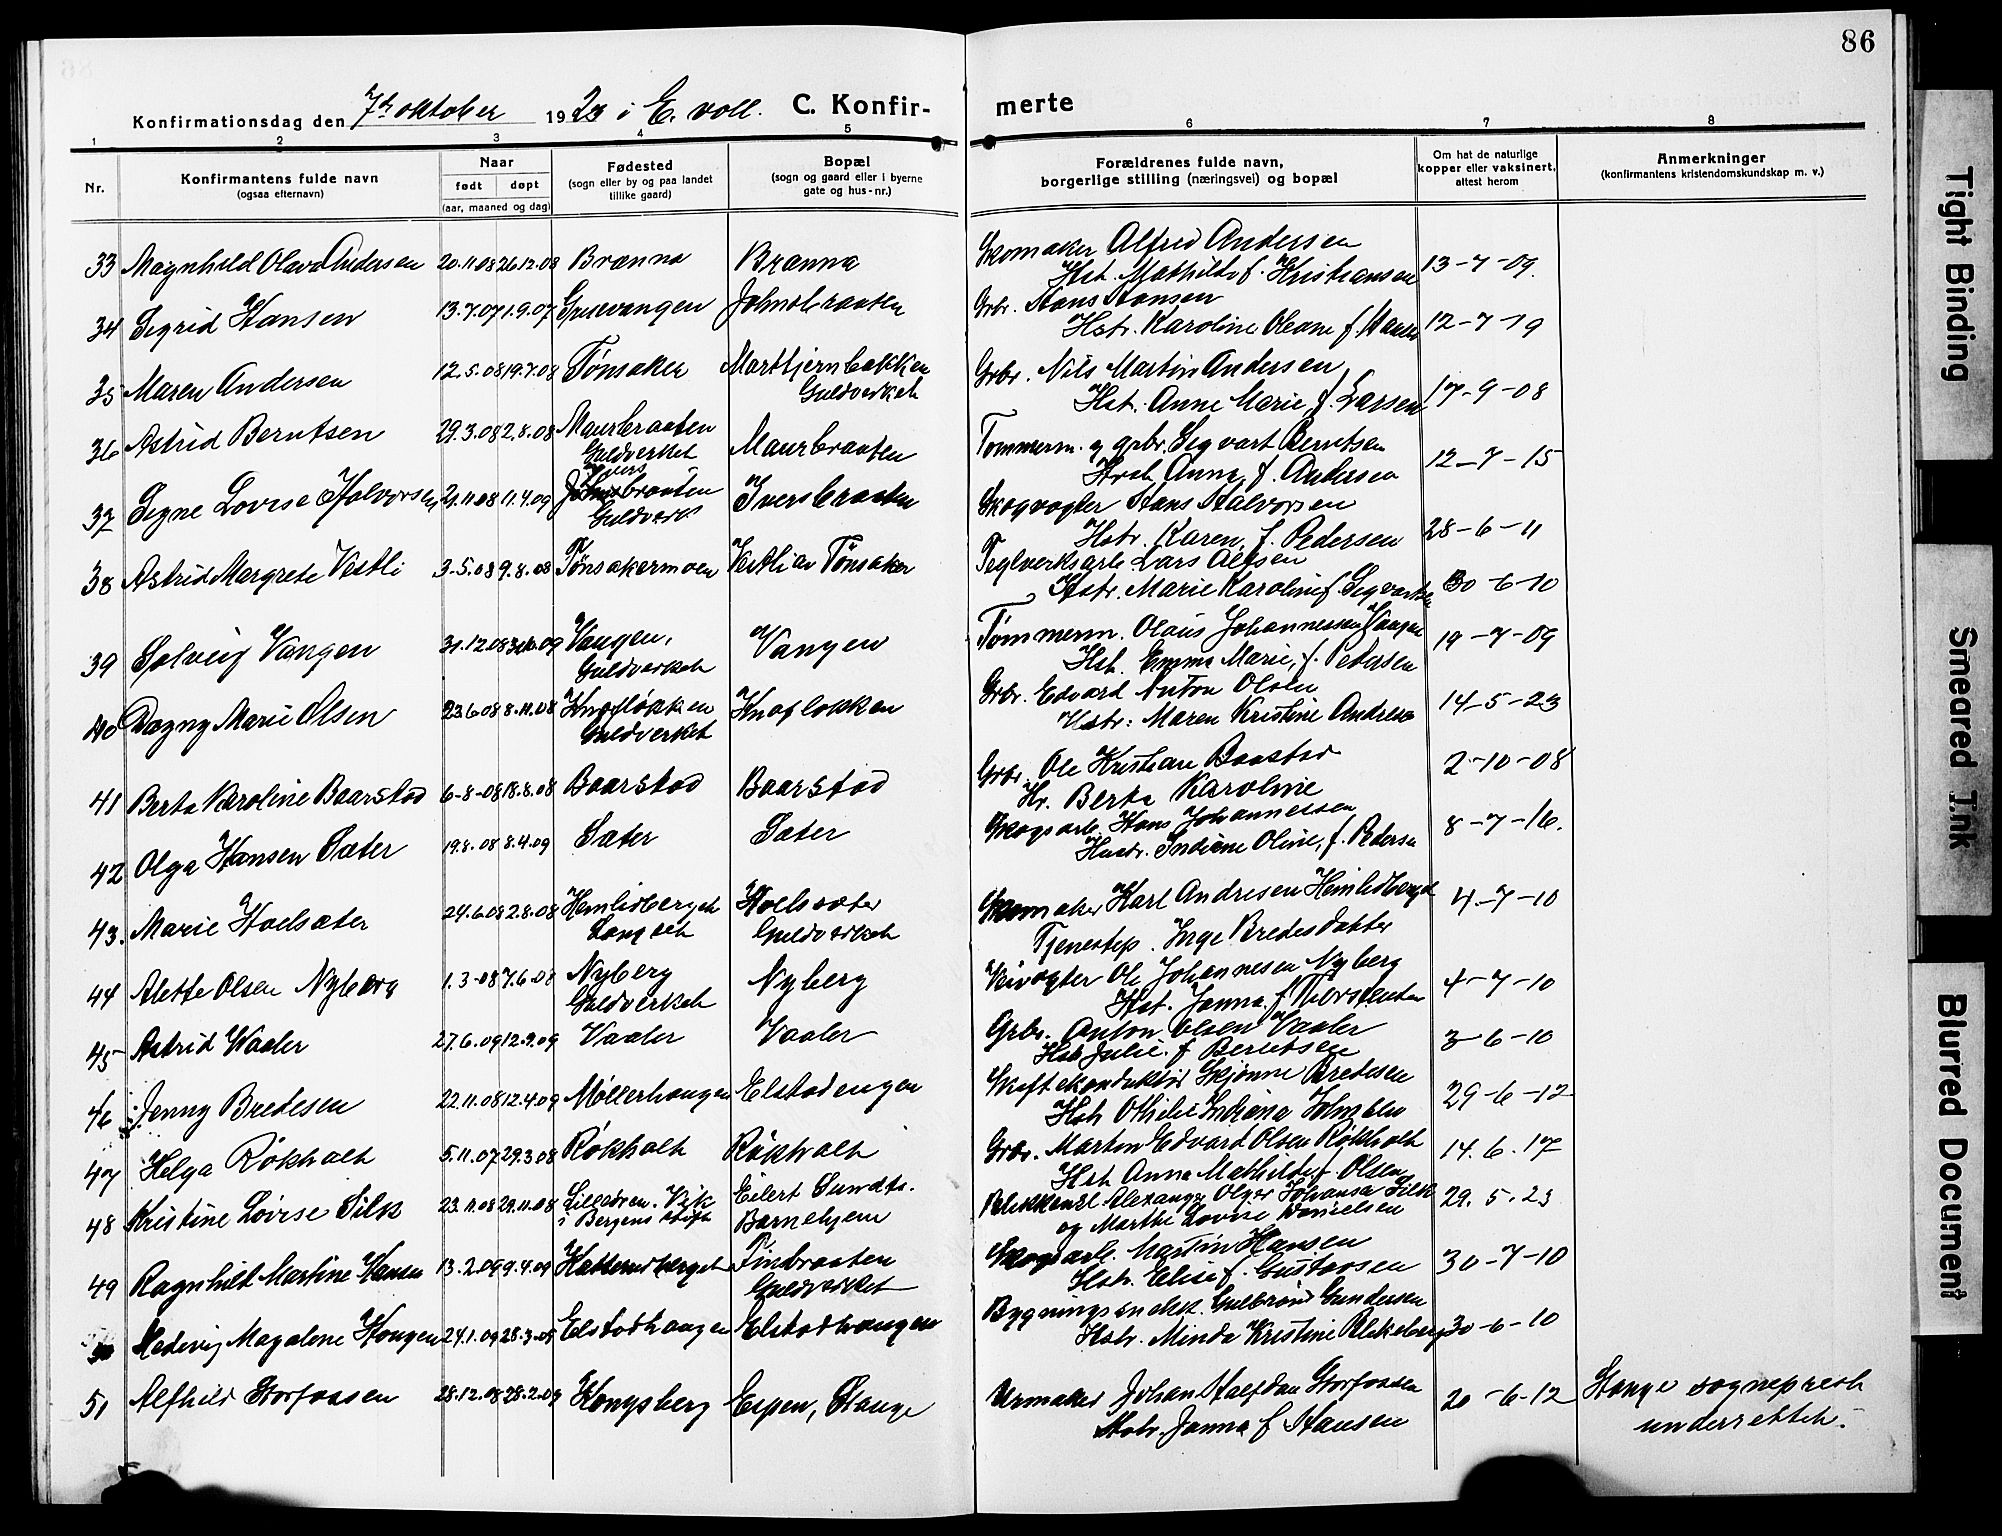 86
Konfirmationsdag den 7de oktober 1923 i E. voll. C. Konfir-
merte
1 2 3 4 5 6 7 8
Nr.
Konfirmantens fulde navn
(ogsaa efternavn)
Naar
født døpt
(aar, maaned og dag)
Fødested
(sogn eller by og paa landet
tillike gaard)
Bopæl
(sogn og gaard eller i byerne
gate og hus-nr.)
Forældrenes fulde navn,
borgerlige stilling (næringsvei) og bopæl
Om hat de naturlige
kopper eller vaksinert,
attest herom
Anmerkninger
(konfirmantens kristendomskundskap m. v.)
33 Magnhild Olava Andersen 20.11.08 26.12.08 Brænna Brænna Skomaker Alfred Andersen
Hst. Mathilde f. Kristiansen 13-7-09.
34 Sigrid Hansen 13.7.07 1.9.07 Johnsbraaten Grbr. Hans Hansen
Hstr. Karoline Oleane f. Hansen 12-7-19
35 Maren Andersen 12.5.08 19.7.08 Tønsaker Marttjernbakken
Guldverket
Grbr. Nils Martin Andersen
Hst. Anne Marie f. Larsen 17-9-08
36 Astrid Berntsen 29.3.08 2.8.08 Maurbraaten
Guldverket
Maurbraaten
Tømmerm. og grbr. Sigvart Berntsen
Hst. Anna f. Andersen 12-7-15
37 Signe Lovise Halvorsen 21.11.08 11.4.09 Iversbraaten
Guldverk
Iversbraaten
Skogvogter Hans Halvorsen
Hstr. Karen, f. Pedersen 28-6-11
38 Astrid Margrete Vestli 3-5.08 9.8.08 Tønsakermoen Vestli av Tønsaker Teglverksarb. Lars Alfsen
Hstr. Marie Karoline f. Sigvartsen 30-6-10
39 Solveig Vangen 31.12.08 Vangen,
Guldverket
Vangen
Tømmerm. Olaus Johannessen Vangen
Hst. Emma Marie, f. Pedersen 19-7-09
40 Dagny Marie Olsen 23.6.08 8.11.08 Knofløkken
Guldverket
Knofløkken
Grbr. Edvard Anton Olsen
Hstr: Maren Kristine Andresen 14-5-23
41 Berta Karoline Baarstad 6-8-08 18.8.08 Baarstad Baarstad Grbr. Ole Kristian Baastad
Hr. Berta Karoline 2-10-08
42 Olga Hansen Sæter 19.8.08 8.4.09 Sæter Sæter Skogsarb. Hans Johannessen
Hustr. Indiane Oline, f. Pedersen 8-7-16.
43. Marie Hoelsæter 24.6.08 2.8.08 Hemlidberget
Langset
Hoelsæter
Guldverket
Skomaker Karl Andresen Heimlidberget
Tjenestep. Inga Bredesdatter 4-7-10
44 Alette Olsen Nyberg 1.3-08 7.6.08 Nyberg
Guldverket
Nyberg
Ole Johannesen Nyberg
Hst. Janna f. Thorstensen 4-7-10
45 Astrid Vaaler 27.6.09 12.9.09 Vaaler Vaaler Grbr. Anton Olsen Vaaler
Hst. Julie f. Berntsen 3-6-10
46 Jenny Bredesen 22.11.08 12.4.09 Møllerhaugen Elstadengen Skiftekonduktør Skjønne Bredesen
Hst. Othilie Indiana Johnsen 29-6-12
47 Helga Røkholt 5.11.07 29.3.08 Røkholt Røkholt Grbr. Martin Edvard Olsen Røkholt
Hst. Anna Mathilde f. Olsen 14.6.17
48 Kristine Lovise Silk 23.11.08 29.11.08 Lilleøren. Vik
i Bergens stift
Eilert Sundts.
Barnehjem
Blikkensl. Alexanger Olger Johansen Silk
og Marthe Lovise Danielsen 29.5.23
49 Ragnhild Martine Hansen 13.2.09 9.4.09 Finbraaten
Guldverket
Skogsarb. Martin Hansen
Hstr. Elise f. Gustavsen 30-7-10
50 Hedevig Magdalene Haugen 24.1.09 28.3.09 Elstadhaugen Elstadhaugen Bygningssnekk. Gulbrand Gundersen
Hstr. Minda Kristine Blekeberg 30-6-10
51 Alfhild Storfossen 28.12.08 28.2.09 Kongsberg Espen, Stange Urmaker Johan Halfdan Storfossen
Hstr. Janna f Hansen 20-6-12
Stange sogneprest
underrettet.
Tight Binding
Smeared Ink
Blurred Document